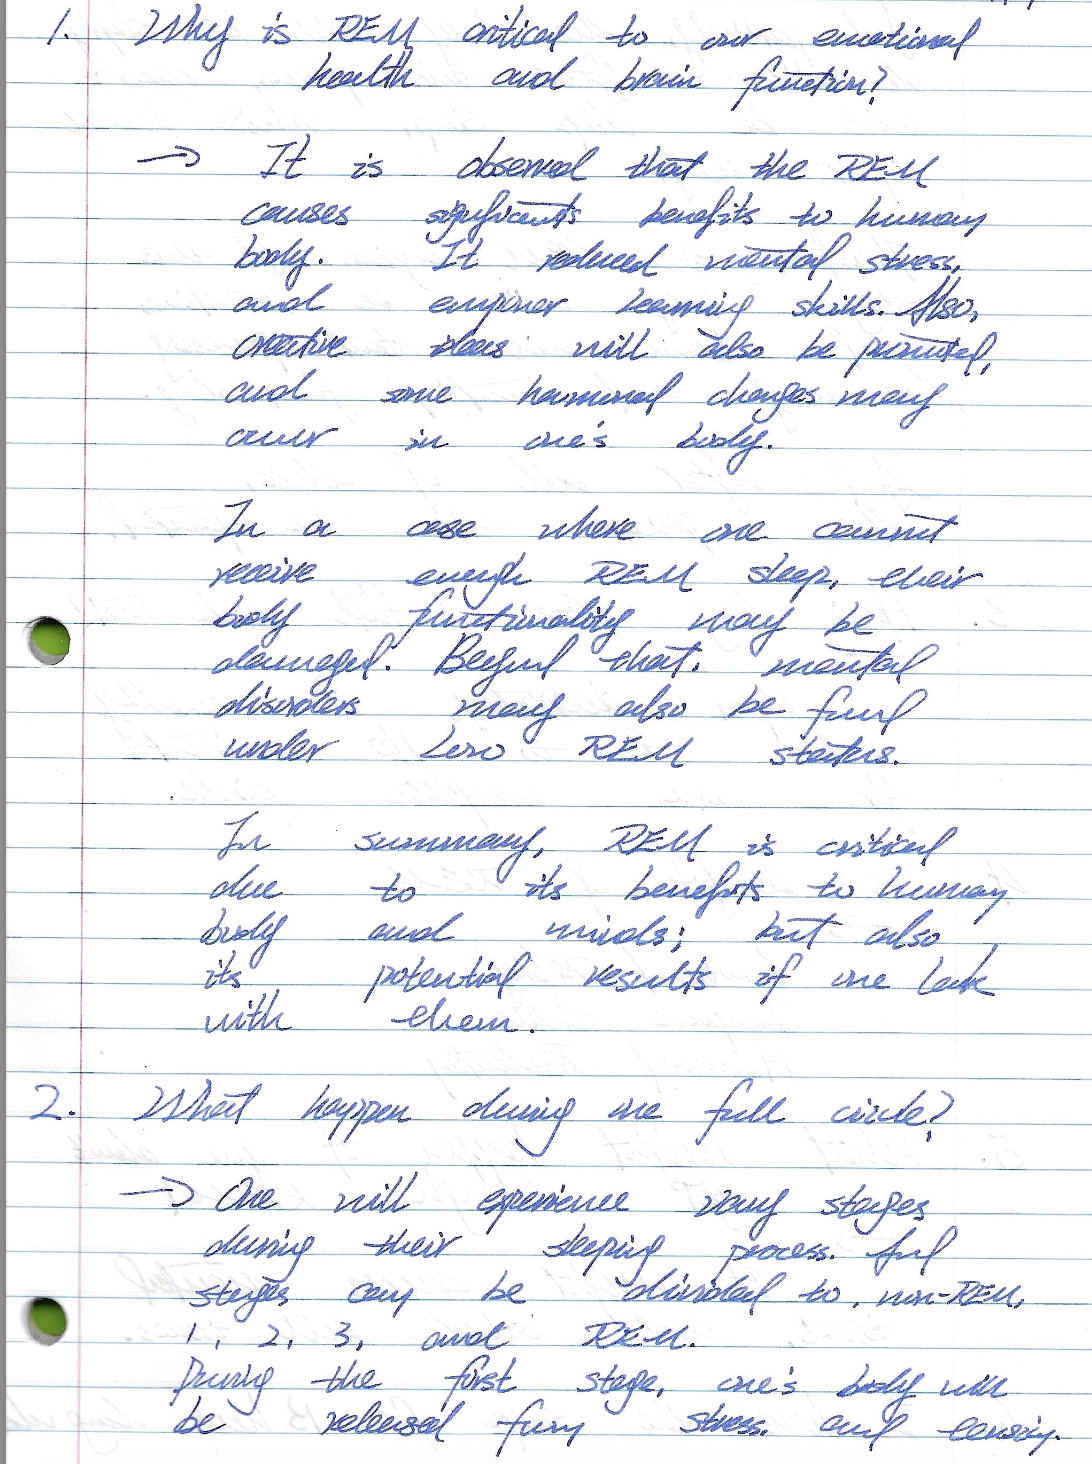 1. Why is REM critical to our emotional
health and brain function?
→ It is observed that the REM
causes significants benefits to human
body. It reduced mental stress,
and empower learning skills. Also,
creative ideas will also be promoted,
and some hormonal changes may
occur in one's body.
In a case where one cannot
receive enough REM sleep, their
body functionality may be
damaged. Beyond that, mental
disorders may also be found
under zero REM status.
In summary, REM is critical
due to its benefits to human
body and minds; but also,
its potential results if one lack
with them.
2. What happen during one full circle?
→ One will experience many stages
during their sleeping process.
stages can be divided to, non-REM,
1, 2, 3, and REM.
During the first stage, one's body will
be released from stress, and